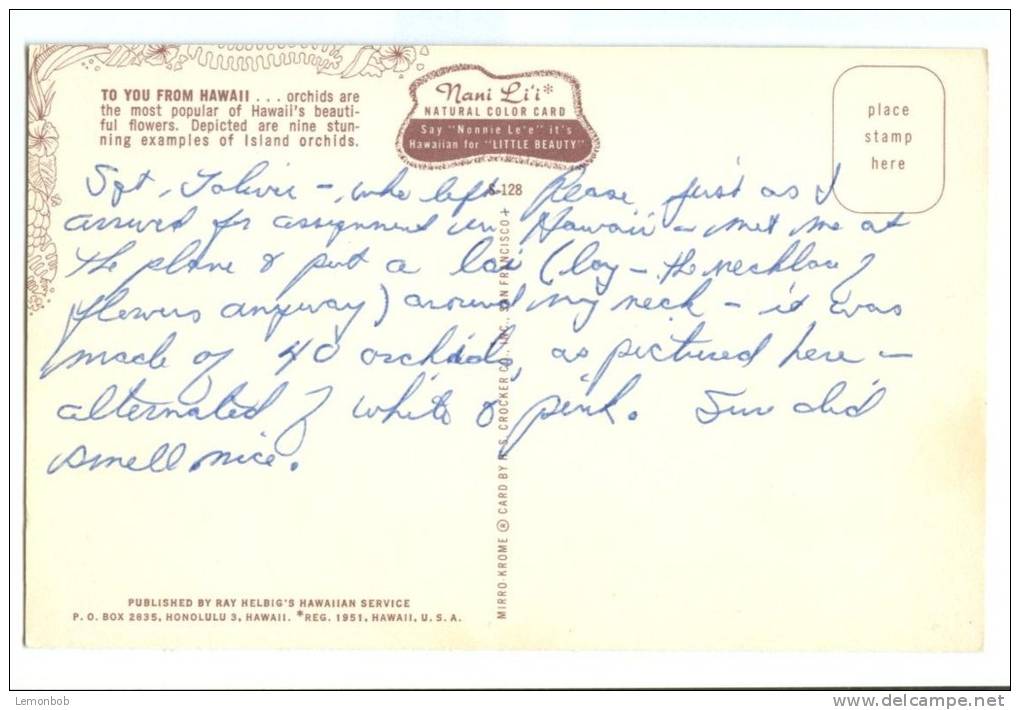 TO YOU FROM HAWAII . . . orchids are
the most popular of Hawaii's beauti-
ful flowers. Depicted are nine stun-
ning examples of Island orchids.
Nani Li'i*
NATURAL COLOR CARD
Say "Nonnie Le'e" it's
Hawaiian for "LITTLE BEAUTY"
place
stamp
here
S-128
Sgt. Toliver -, who left Please just as I
arrived for assignment in Hawaii - met me at
the plane & put a lai (lay - the necklace of
flowers anyway) around my neck - it was
made of 40 orchids, as pictured here -
alternated of white & pink. Sure did
smell nice.
MIRRO-KROME ® CARD BY H. S. CROCKER CO., INC., SAN FRANCISCO
PUBLISHED BY RAY HELBIG'S HAWAIIAN SERVICE
P. O. BOX 2835, HONOLULU 3, HAWAII. *REG. 1951, HAWAII, U. S. A.
Lemonbob
www.delcampe.net